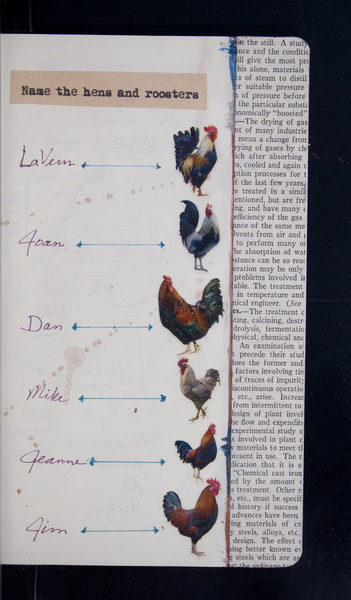 Name the hens and roosters
LaVern
Joan
Dan
Mike
Jeanne
Jim
in the still. A study
ance and the conditio
ill give the most pro
his alone, materials
s of steam to distil
er suitable pressure
n of pressure before
the particular substa
onomically "boosted"
—The drying of gas
nt of many industrie
mean a change from
rying of gases by che
ich after absorbing
s, cooled and again u
ption processes for t
f the last few years,
e treated in a simil
entioned, but are fre
ng, and have many
efficiency of the gas
ance of the same me
vents from air and
to perform many o
he absorption of wat
stance can be so read
eration may be only
problems involved in
able. The treatment
in temperature and
nical engineer. (See
es.—The treatment o
ting, calcining, destr
drolysis, fermentatic
hysical, chemical and
An examination o
precede their stud
does the former and
factors involving tin
of traces of impurity
iscontinuous operatio
etc., arise. Increas
from intermittent to
design of plant invol
the flow and expendit
experimental study o
s involved in plant c
w materials to meet th
present in use. The r
dication that it is s
"Chemical cast iron
ed by the amount o
s treatment. Other n
, etc., must be specif
d history if success
advances have been
ying materials of co
y steels, alloys, etc.
design. The effect o
ing better known ev
g steels which are as